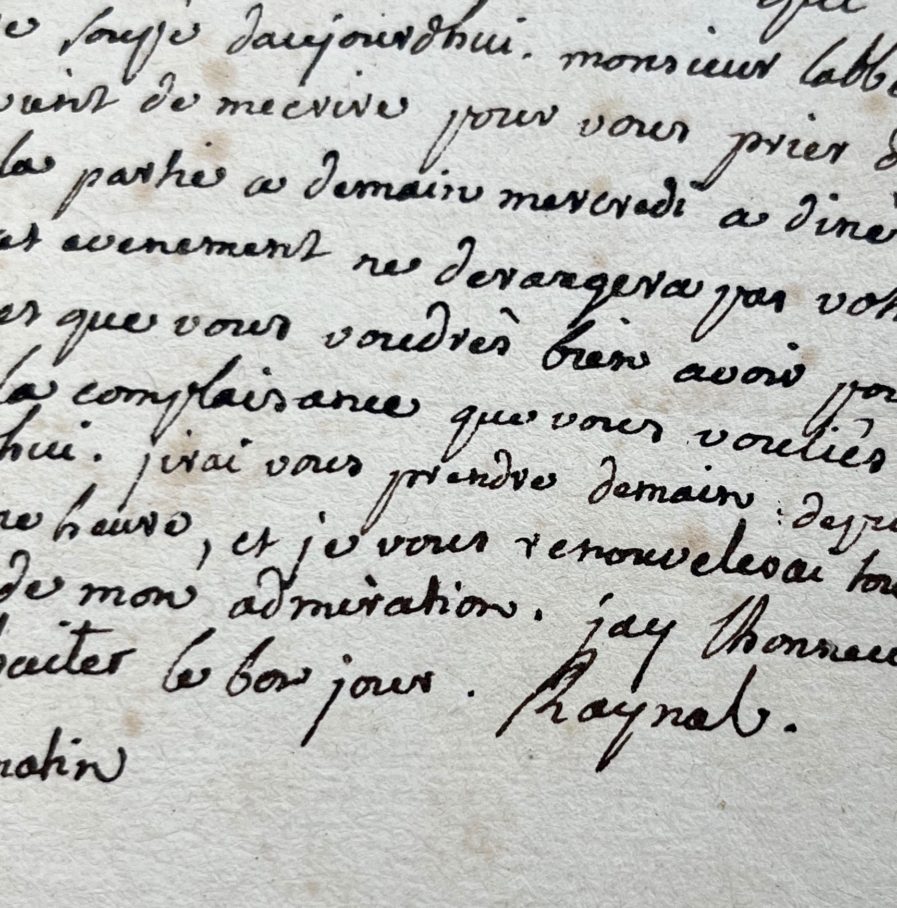 que
e soupé daujourdhui. monsieur labbé
vient de mecrire pour vous prier d
la partie a demain mercredi a diné
et evenement ne derangera pas vot
es que vous voudrés bien avoir pou
la complaisance que vous vouliés
hui. jirai vous prendre demain depu
ne heure, et je vous renouvelerai tou
de mon admiration. jay lhonneu
haiter le bon jour. Raynal.
matin